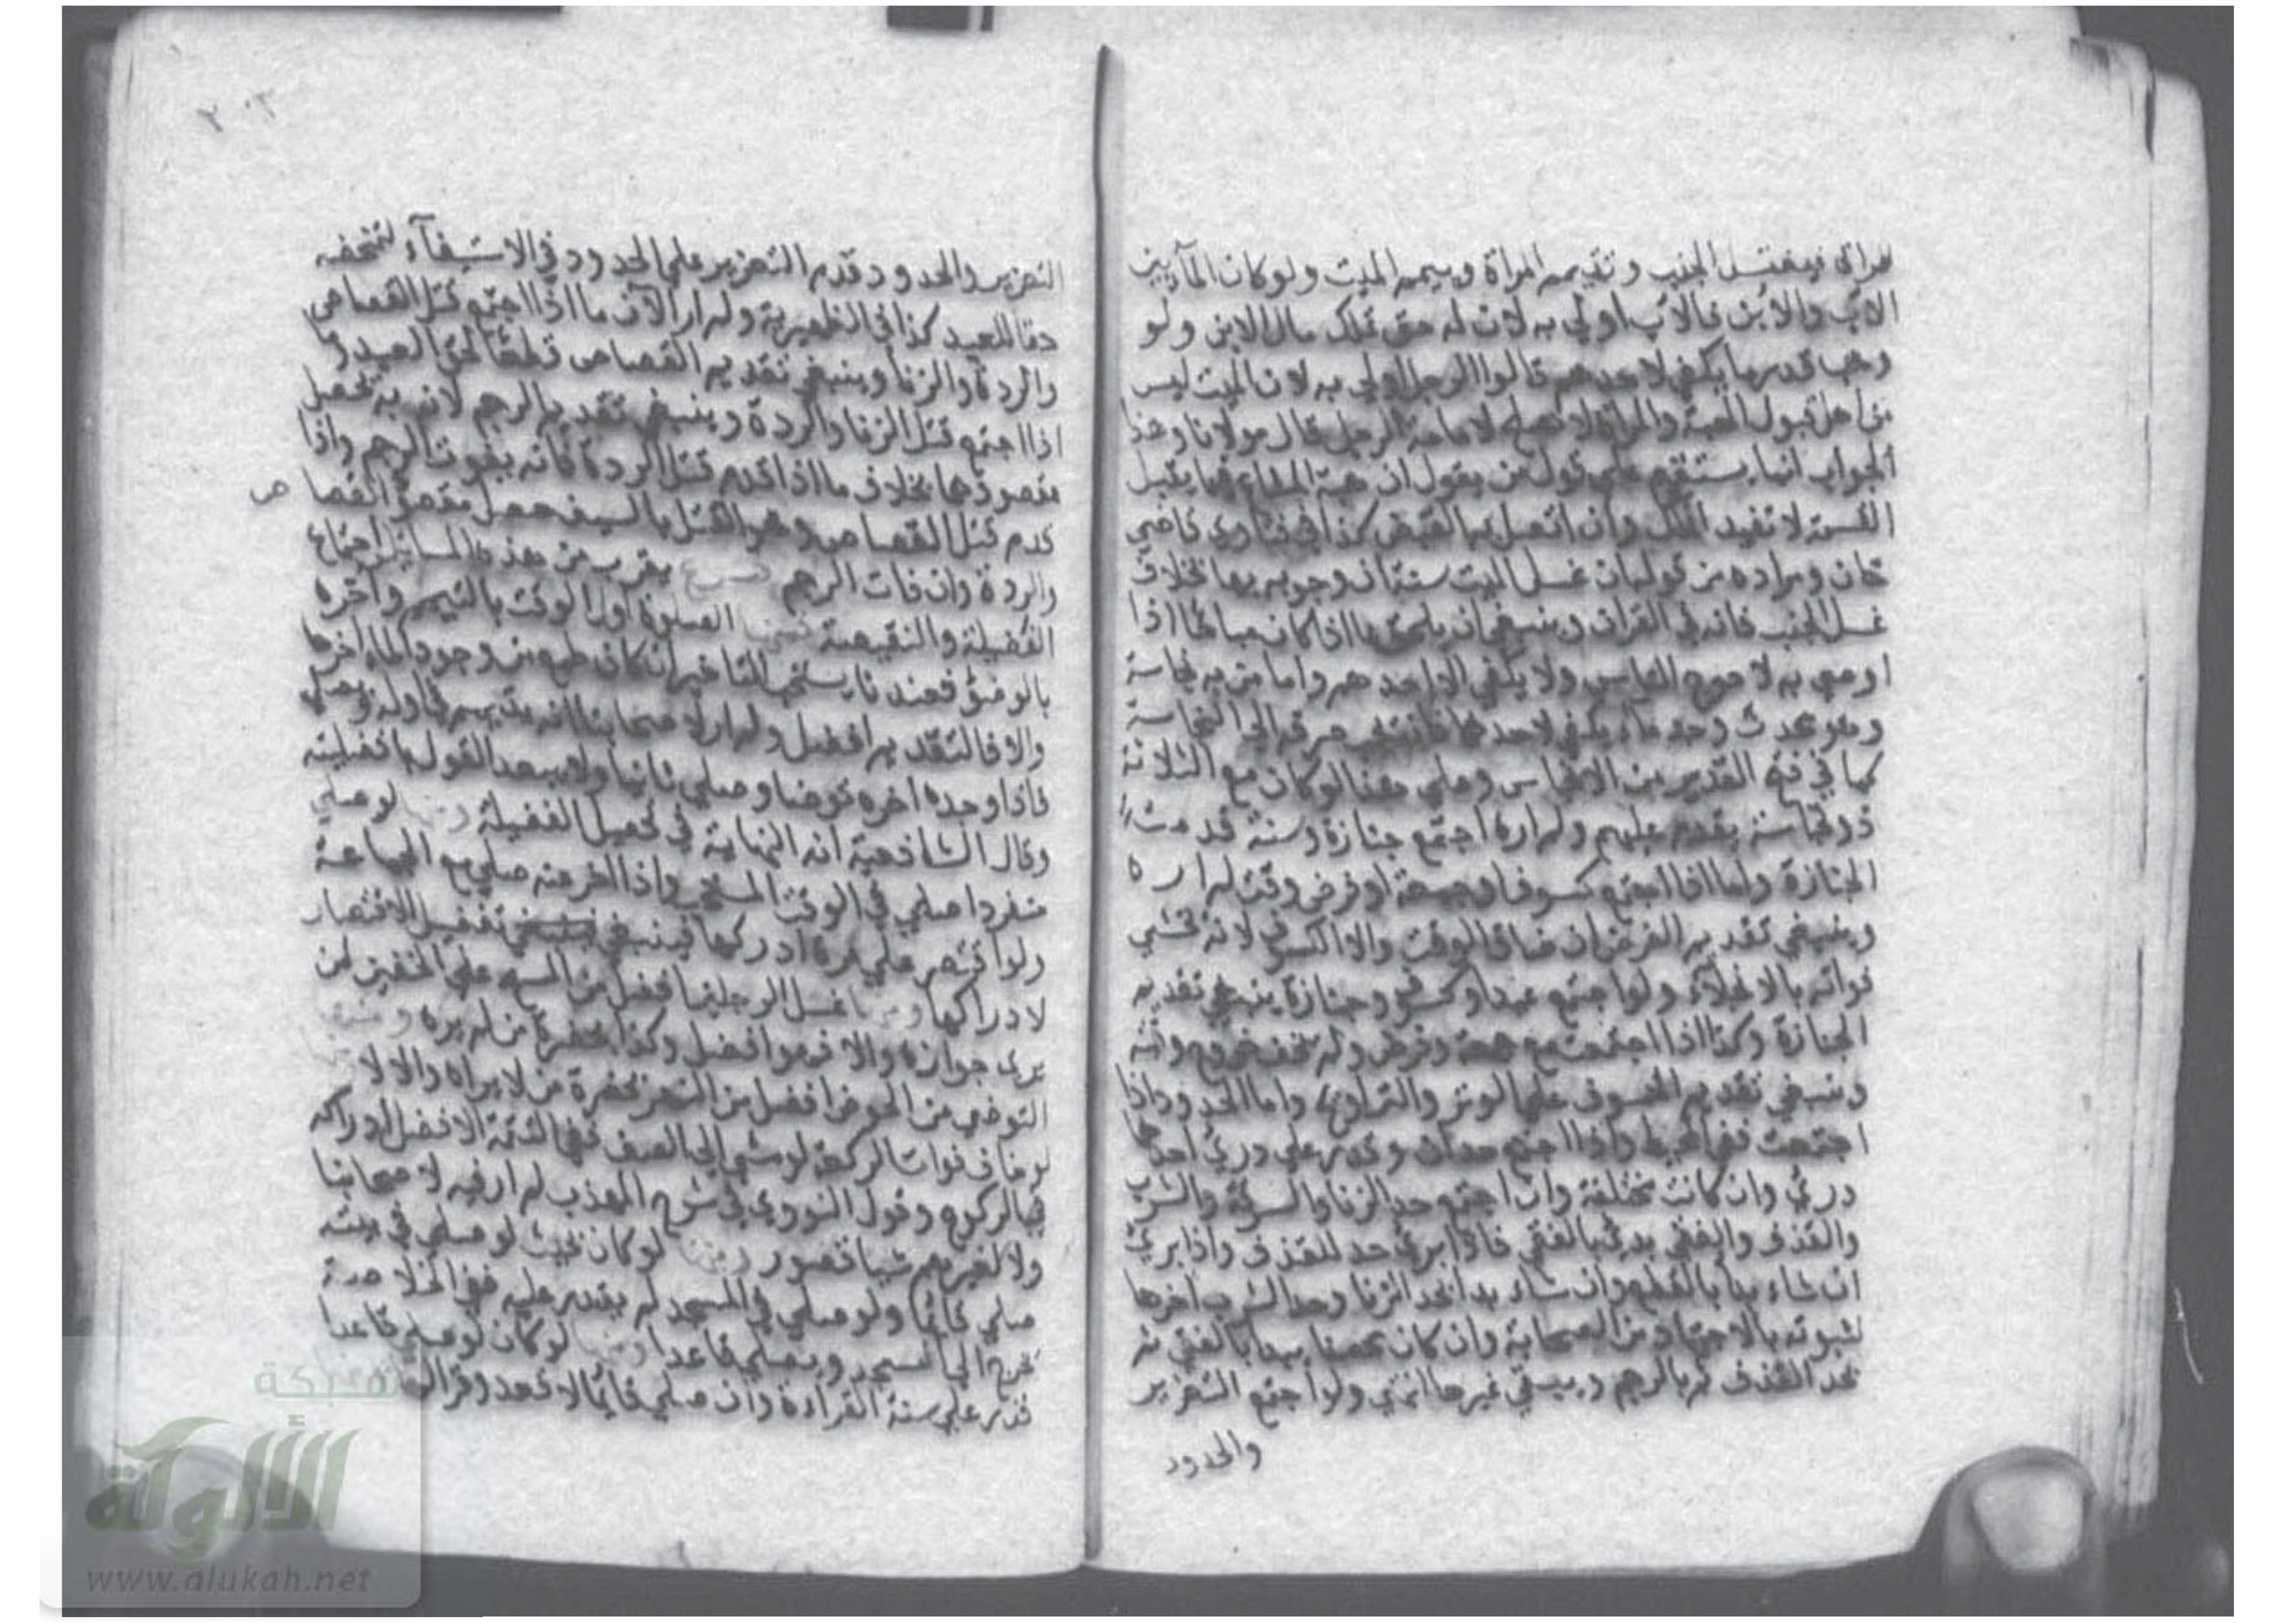 للمرأة فيغتسل الجنب وتتيمم المرأة وييمم الميت ولو كان الماء بين
الاب والابن فالاب اولي به لان له حق تملك مال الابن ولو
وهب قدر ما يكفي لاحدهم قالوا الرجل اولي به لان الميت ليس
من اهل قبول الهبة والمراة لا تصلح لامامة الرجل قال مولانا وهذا
الجواب انما يستقيم علي قول من يقول ان هبة المشاع فيما يقبل
القسمة لا تفيد الملك وان اتصل بها القبض كذا في فتاوي قاضي
خان ومراده من قوله ان غسل الميت سنة ان وجوبه بها بخلاف
غسل الجنب فانه في القران وينبغي ان يلحق بما اذا كان مباحا ما اذا
اوصي به لاحوج الناس ولا يكفي الا احدهم واما من به نجاسة
وهو محدث وجد ماء يكفي لاحدهما فانه يجب صرفه الي النجاسة
كما في فتح القدير من الانجاس وعلي هذا لو كان مع الثلاثة
ذو نجاسة يقدم عليهم ولم اره اجتمع جنازة وسنة قدمت
الجنازة واما اذا اجتمع كسوف وجمعة او فرض وقت لم اره
وينبغي تقديم الفرض ان ضاق الوقت والا الكسوف لانه يخشي
فواته بالانجلاء ولو اجتمع عيد وكسوف وجنازة ينبغي تقديم
الجنازة وكذا اذا اجتمعت مع جمعة وفرض ولم يخف خروج وقته
وينبغي تقديم الخسوف علي الوتر والتراويح واما الحدود اذا
اجتمعت ففي المحيط واذا اجتمع حدان وقدر علي درئ احدهما
درئ وان كانت مختلفة وان اجتمع حد الزنا والسرقة والشرب
والقذف والفقئ بدئ بالفقئ فاذا برئ حد للقذف واذا برئ
ان شاء بدا بالقطع وان شاء بدا بحد الزنا وحد الشرب اخرها
لثبوته بالاجتهاد من الصحابة وان كان محصنا يبدا بالفقئ ثم
بحد القذف ثم بالرجم ويسقي غيرها ولو اجتمع التعزير
والحدود
٢٠٢
التعزير والحدود قدم التعزير علي الحدود في الاستيفآء لتمحضه
حقا للعبد كذا في الظهيرية ولم ار الآن ما اذا اجتمع قتل القصاص
والردة والزنا وينبغي تقديم القصاص قطعا لحق العبد وما
اذا اجتمع قتل الزنا والردة وينبغي تقديم الرجم لان به يحصل
مقصودهما بخلاف ما اذا قدم قتل الردة فانه يفوت الرجم واذا
قدم قتل القصاص وهو القتل بالسيف حصل مقصود القصاص
والردة وان فات الرجم فرع يقرب من هذه المسائل اجتماع
الفضيلة والنقيصة فمنها الصلوة اول الوقت بالتيمم وآخره
بالوضوء فعندنا يستحب التاخير ان كان طمع من وجود الماء اخرها
والا فالتقديم افضل ولم ار لاصحابنا انه يتيمم في اوله ويصلي
فاذا وجده اخره توضا وصلي ثانيا ولا يبعد القول بافضليته
وقال الشافعية انه النهاية في تحصيل الفضيلة ومنها لو صلي
منفردا صلي في الوقت المستحب واذا اخر عنه صلي مع الجماعة
ولو اقتصر علي مرة ادركها فينبغي تفضيل الاقتصار
لادراكها ومنها غسل الرجلين افضل من المسح علي الخفين لمن
يري جوازه والا فهو افضل وكذا بحضرة من لم يره ومنها
التوضي من الحوض افضل من النهر بحضرة من لا يراه والا لا
لو خاف فوات الركعة لو مشي الي الصف ففي اليتيمة الافضل ادراكه
في الركوع وقول النووي في شرح المهذب لم ار فيه لاصحابنا
ولا لغيرهم شيا قصور ومنها لو كان بحيث لو صلي في بيته
صلي قائما ولو صلي في المسجد لم يقدر عليه ففي الخلاصة
يخرج الي المسجد ويصلي قاعدا ومنها لو كان لو صلي قاعدا
قدر علي سنة القراءة وان صلي قائما لا قعد وقرا
شبكة
الألوكة
www.alukah.net